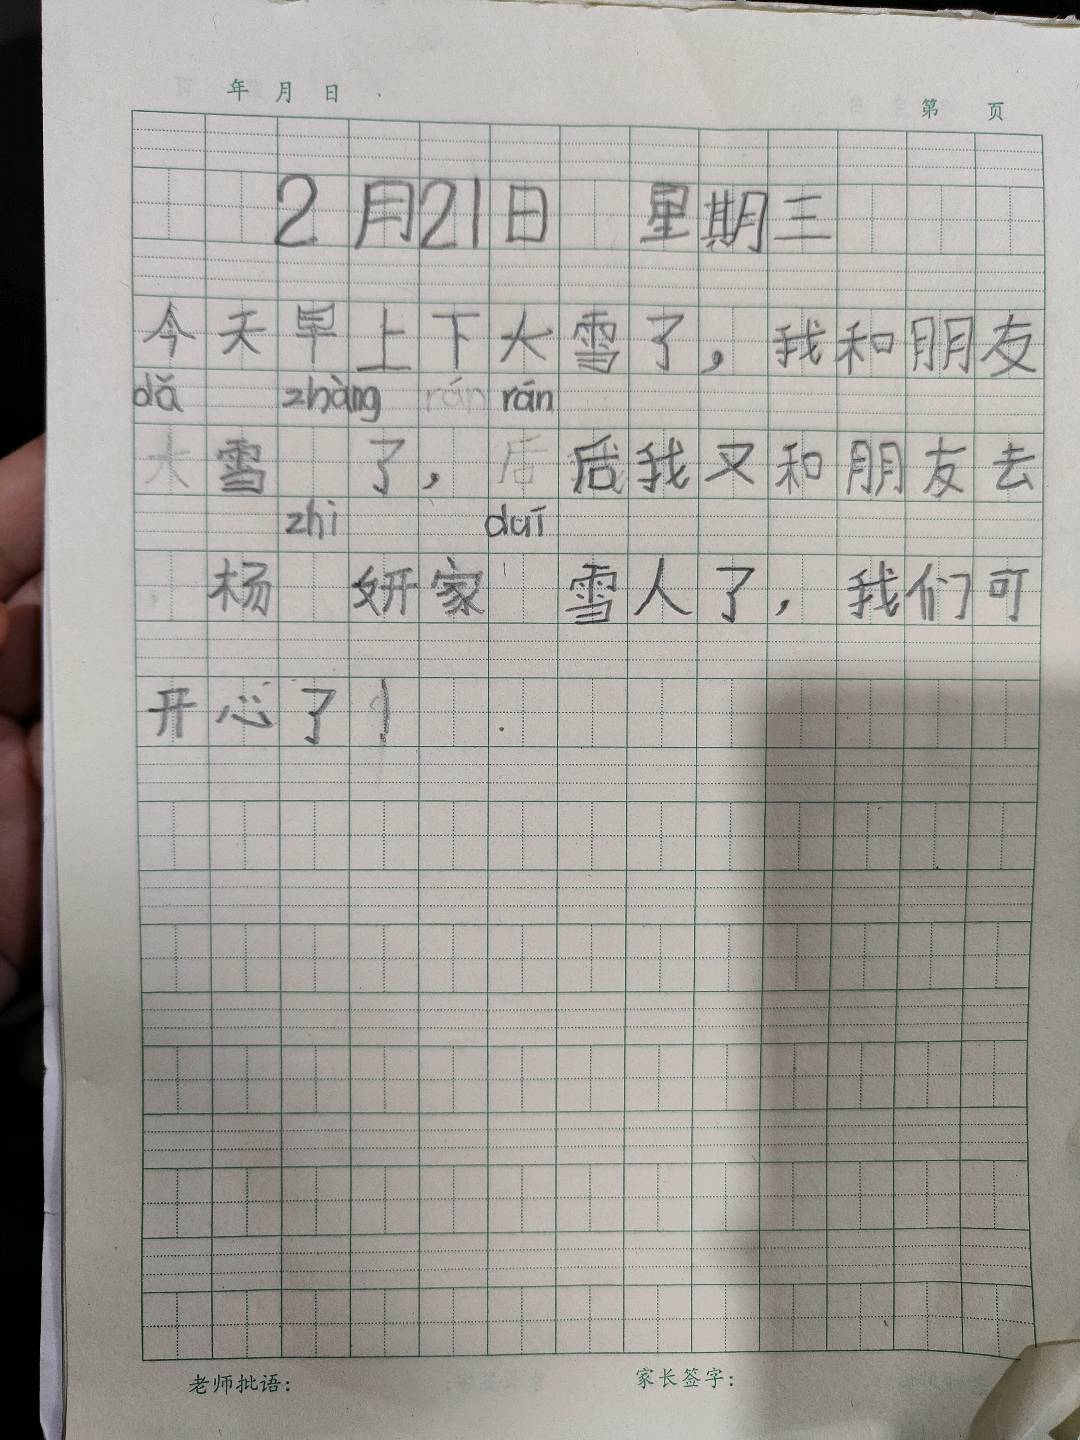 年 月 日 第 页
2月21日 星期三
今天早上下大雪了，我和朋友
dǎ zhàng rán rán
大雪 了，后后我又和朋友去
zhi duī
杨 妍家 雪人了，我们可
开心了！
老师批语： 家长签字：